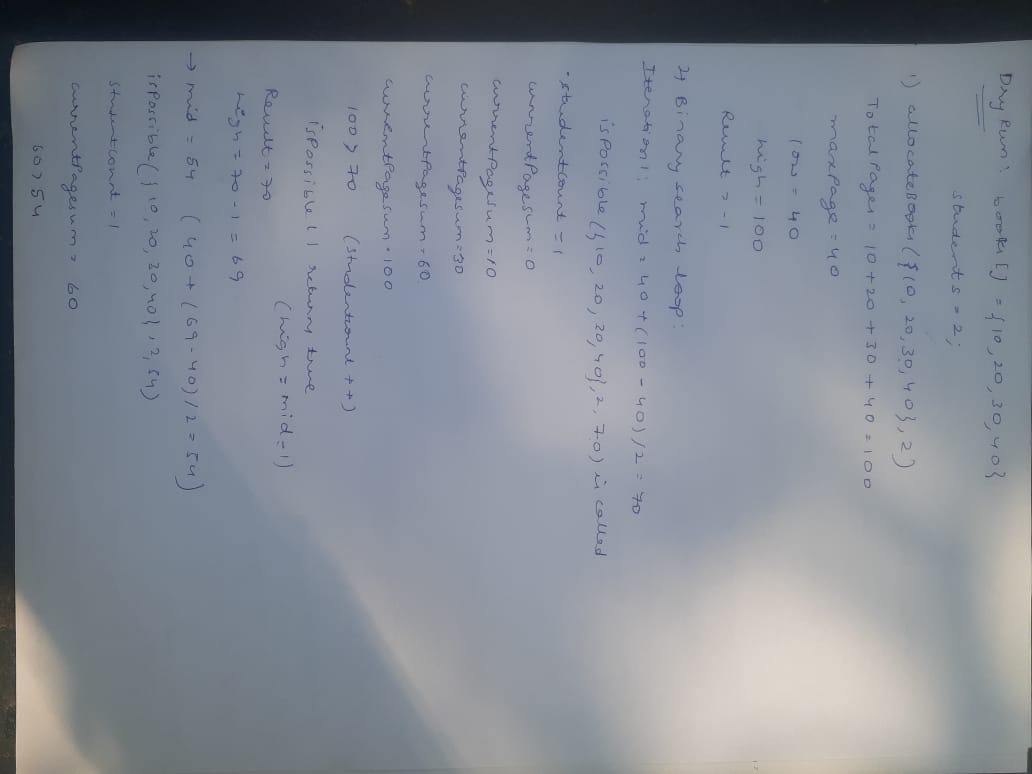 Dry Run: books[] = {10, 20, 30, 40}
students = 2;
1) allocateBooks ({10, 20, 30, 40}, 2)
Total Pages = 10 + 20 + 30 + 40 = 100
maxPage = 40
low = 40
high = 100
Result = -1
2) Binary search loop:
Iteration 1: mid = 40 + (100 - 40) / 2 = 70
isPossible ({10, 20, 30, 40}, 2, 70) is called
• student count = 1
currentPagesum = 0
currentPagesum = 10
currentPagesum = 30
currentPagesum = 60
currentPagesum = 100
100 > 70 (student count ++)
isPossible ( ) returns true
Result = 70 (high = mid = 1)
high = 70 - 1 = 69
→ mid = 54 (40 + (69 - 40) / 2 = 54)
isPossible ({10, 20, 30, 40}, 2, 54)
student count = 1
currentPagesum = 60
60 > 54